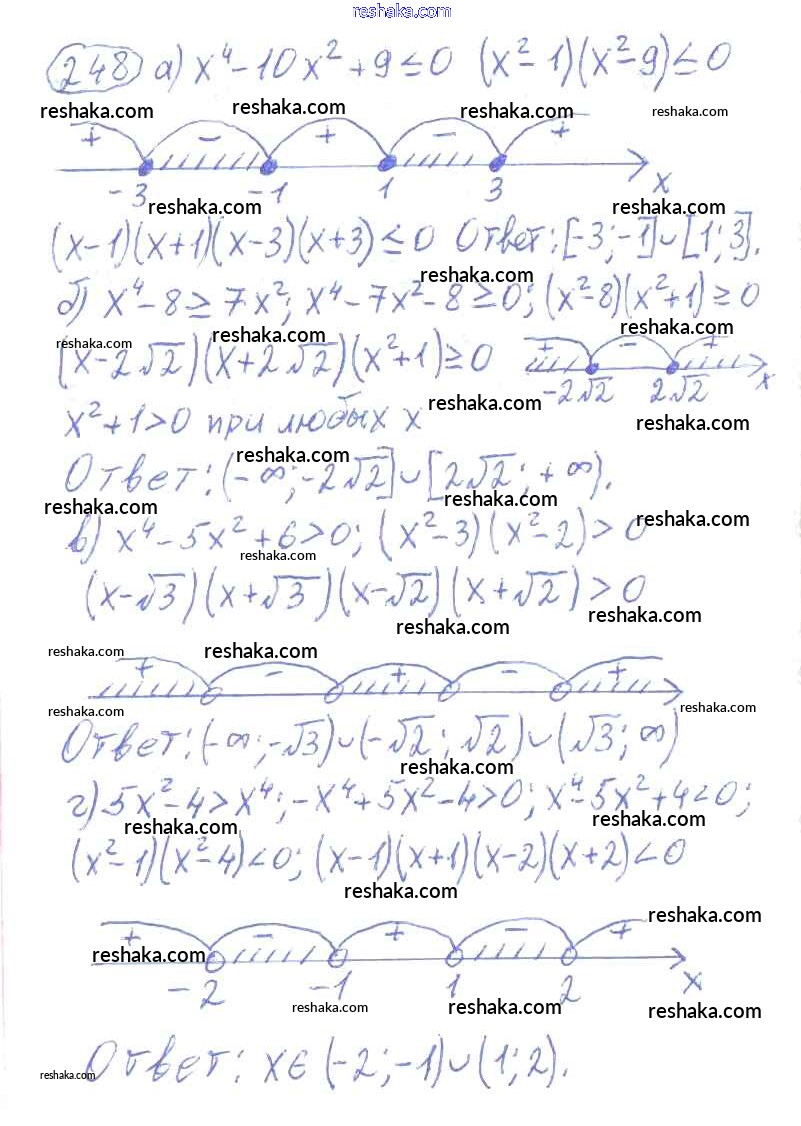 reshaka.com
248 а) x⁴-10x²+9≤0 (x²-1)(x²-9)≤0
reshaka.com reshaka.com reshaka.com reshaka.com
+ - + - +
-3 -1 1 3 x
reshaka.com reshaka.com
(x-1)(x+1)(x-3)(x+3)≤0 Ответ: [-3;-1]∪[1;3].
reshaka.com
б) x⁴-8≥7x²; x⁴-7x²-8≥0; (x²-8)(x²+1)≥0
reshaka.com reshaka.com reshaka.com
(x-2√2)(x+2√2)(x²+1)≥0 + - +
-2√2 2√2 x
x²+1>0 при любых x reshaka.com reshaka.com
reshaka.com
Ответ: (-∞;-2√2]∪[2√2;+∞).
reshaka.com reshaka.com reshaka.com
в) x⁴-5x²+6>0; (x²-3)(x²-2)>0
reshaka.com
(x-√3)(x+√3)(x-√2)(x+√2)>0
reshaka.com reshaka.com
reshaka.com reshaka.com
+ - + - +
reshaka.com reshaka.com
Ответ: (-∞;-√3)∪(-√2;√2)∪(√3;∞)
reshaka.com
г) 5x²-4>x⁴; -x⁴+5x²-4>0; x⁴-5x²+4<0;
reshaka.com reshaka.com
(x²-1)(x²-4)<0; (x-1)(x+1)(x-2)(x+2)<0
reshaka.com
reshaka.com
+ - + - +
reshaka.com
-2 -1 1 2 x
reshaka.com reshaka.com reshaka.com
Ответ: x∈(-2;-1)∪(1;2).
reshaka.com